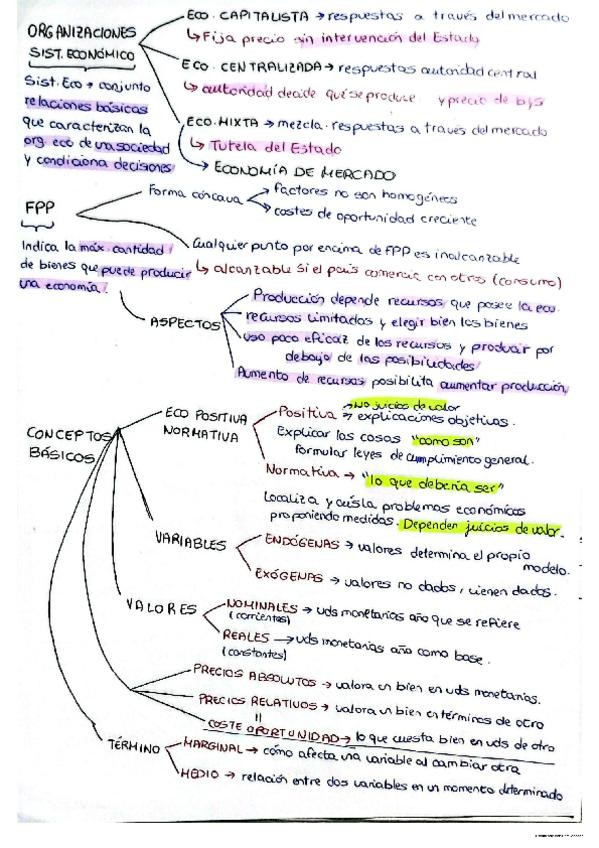 ORGANIZACIONES
SIST. ECONÓMICO
Sist. Eco → conjunto
relaciones básicas
que caracterizan la
org. eco de una sociedad
y condiciona decisiones
ECO. CAPITALISTA → respuestas a través del mercado
↳ Fija precio sin intervención del Estado
ECO. CENTRALIZADA → respuestas autoridad central
↳ autoridad decide qué se produce y precio de b/s
ECO. MIXTA → mezcla. respuestas a través del mercado
↳ Tutela del Estado
→ ECONOMÍA DE MERCADO
FPP
Indica la máx. cantidad
de bienes que puede producir
una economía.
Forma cóncava
factores no son homogéneos
costes de oportunidad creciente
Cualquier punto por encima de FPP es inalcanzable
↳ alcanzable si el país comercia con otros (consumo)
ASPECTOS
Producción depende recursos que posee la eco.
recursos limitados y elegir bien los bienes
uso poco eficaz de los recursos y producir por
debajo de las posibilidades
Aumento de recursos posibilita aumentar producción
CONCEPTOS
BÁSICOS
ECO POSITIVA
NORMATIVA
Positiva → No juicios de valor
→ explicaciones objetivas.
Explicar las cosas "como son"
formular leyes de cumplimiento general.
Normativa → "lo que debería ser"
Localiza y aísla problemas económicos
proponiendo medidas. Dependen juicios de valor.
VARIABLES
ENDÓGENAS → valores determina el propio
modelo.
EXÓGENAS → valores no dados, vienen dados.
VALORES
NOMINALES → uds monetarias año que se refiere
(corrientes)
REALES → uds monetarias año como base.
(constantes)
PRECIOS ABSOLUTOS → valora un bien en uds monetarias.
PRECIOS RELATIVOS → valora un bien en términos de otro
=
COSTE OPORTUNIDAD → lo que cuesta bien en uds de otro
TÉRMINO
MARGINAL → cómo afecta una variable al cambiar otra
MEDIO → relación entre dos variables en un momento determinado